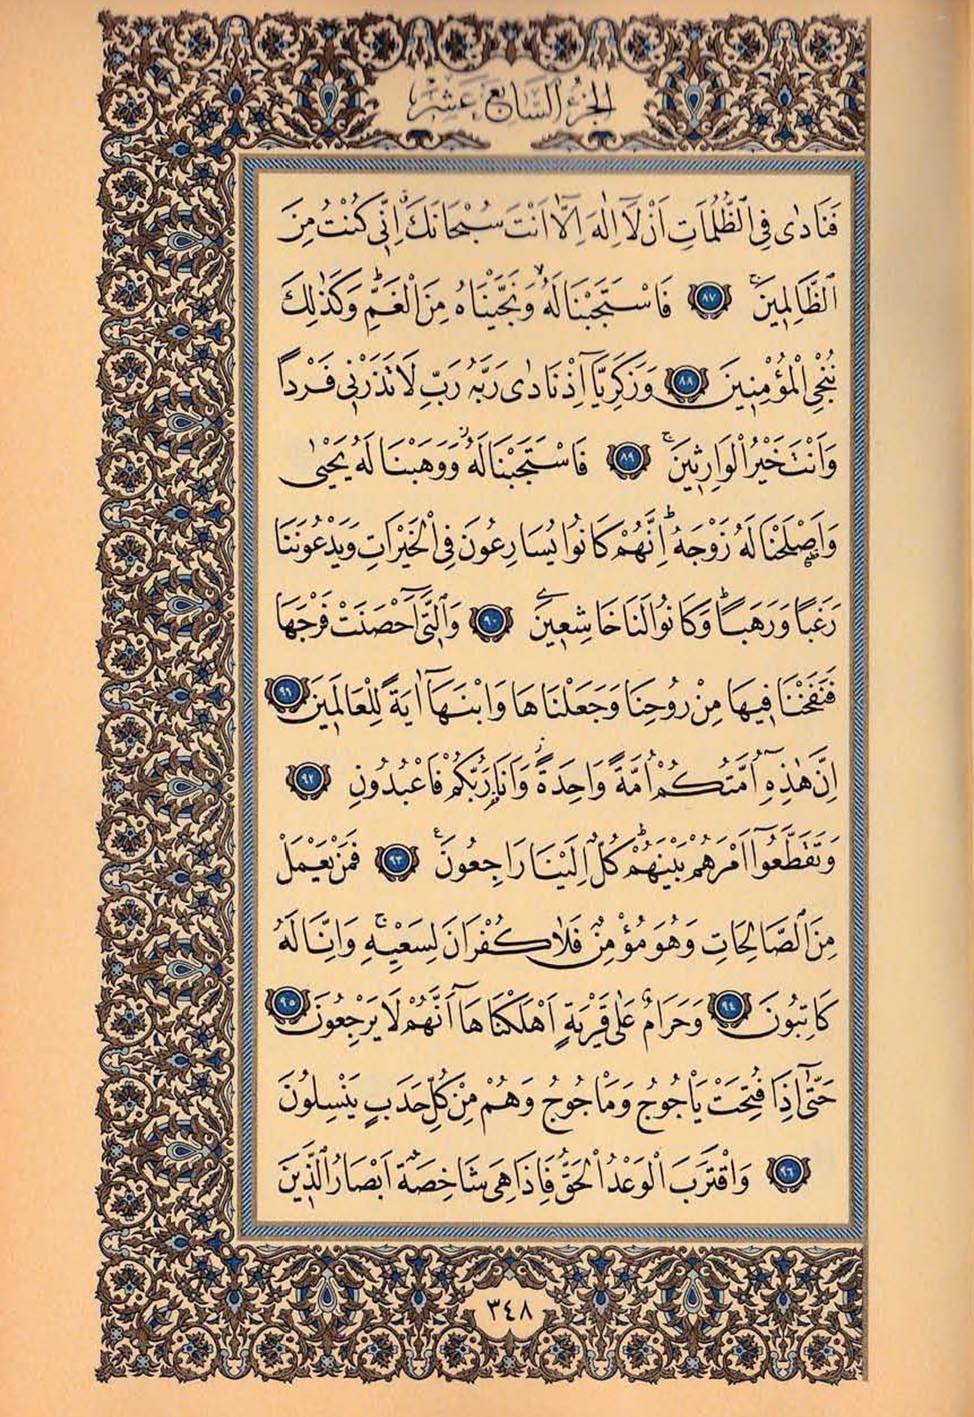 الجزء السابع عشر
فَنَادٰى فِي الظُّلُمَاتِ اَنْ لَٓا اِلٰهَ اِلَّٓا اَنْتَ سُبْحَانَكَۗ اِنّ۪ي كُنْتُ مِنَ
الظَّالِم۪ينَۚ ٨٧ فَاسْتَجَبْنَا لَهُۙ وَنَجَّيْنَاهُ مِنَ الْغَمِّۜ وَكَذٰلِكَ
نُنْجِي الْمُؤْمِن۪ينَ ٨٨ وَزَكَرِيَّٓا اِذْ نَادٰى رَبَّهُ رَبِّ لَا تَذَرْن۪ي فَرْدًا
وَاَنْتَ خَيْرُ الْوَارِث۪ينَۚ ٨٩ فَاسْتَجَبْنَا لَهُۘ وَوَهَبْنَا لَهُ يَحْيٰى
وَاَصْلَحْنَا لَهُ زَوْجَهُۜ اِنَّهُمْ كَانُوا يُسَارِعُونَ فِي الْخَيْرَاتِ وَيَدْعُونَنَا
رَغَبًا وَرَهَبًاۜ وَكَانُوا لَنَا خَاشِع۪ينَ ٩٠ وَالَّت۪ٓي اَحْصَنَتْ فَرْجَهَا
فَنَفَخْنَا ف۪يهَا مِنْ رُوحِنَا وَجَعَلْنَاهَا وَابْنَهَٓا اٰيَةً لِلْعَالَم۪ينَ ٩١
اِنَّ هٰذِه۪ٓ اُمَّتُكُمْ اُمَّةً وَاحِدَةًۘ وَاَنَا۬ رَبُّكُمْ فَاعْبُدُونِ ٩٢
وَتَقَطَّعُٓوا اَمْرَهُمْ بَيْنَهُمْۜ كُلٌّ اِلَيْنَا رَاجِعُونَ۟ ٩٣ فَمَنْ يَعْمَلْ
مِنَ الصَّالِحَاتِ وَهُوَ مُؤْمِنٌ فَلَا كُفْرَانَ لِسَعْيِه۪ۚ وَاِنَّا لَهُ
كَاتِبُونَ ٩٤ وَحَرَامٌ عَلٰى قَرْيَةٍ اَهْلَكْنَاهَٓا اَنَّهُمْ لَا يَرْجِعُونَ ٩٥
حَتّٰٓى اِذَا فُتِحَتْ يَأْجُوجُ وَمَأْجُوجُ وَهُمْ مِنْ كُلِّ حَدَبٍ يَنْسِلُونَ
٩٦ وَاقْتَرَبَ الْوَعْدُ الْحَقُّ فَاِذَا هِيَ شَاخِصَةٌ اَبْصَارُ الَّذ۪ينَ
٣٤٨